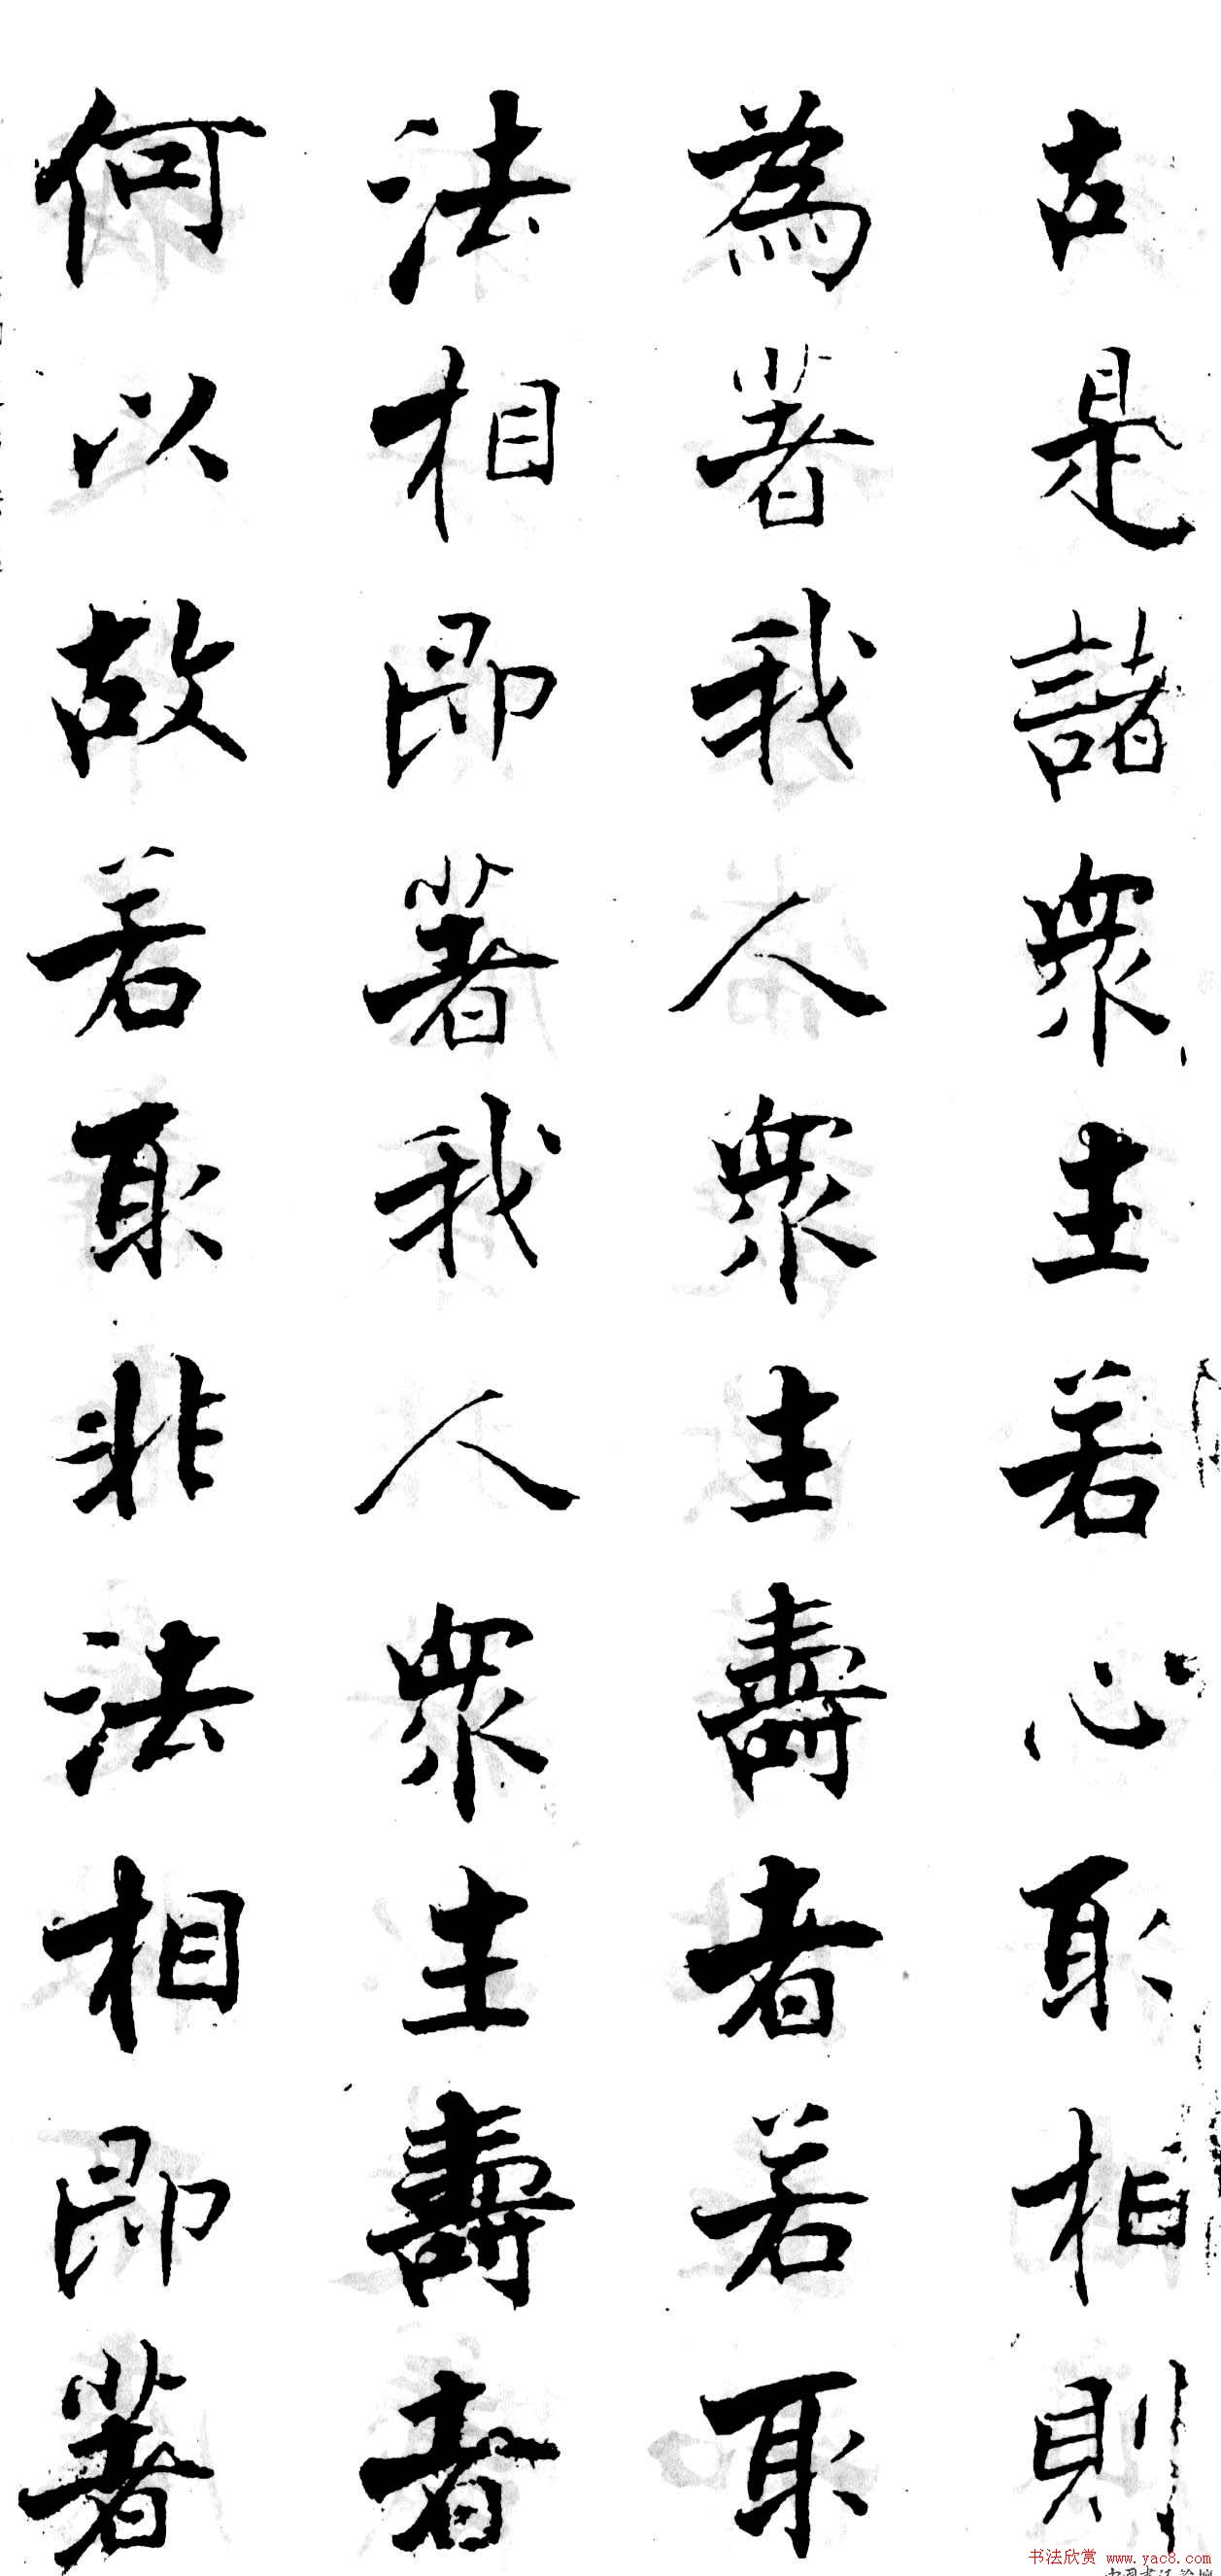 是諸衆生若心取相則
為著我人衆生壽者若取
法相即著我人衆生壽者
何以故若取非法相即著
书法欣赏 www.yac8.com